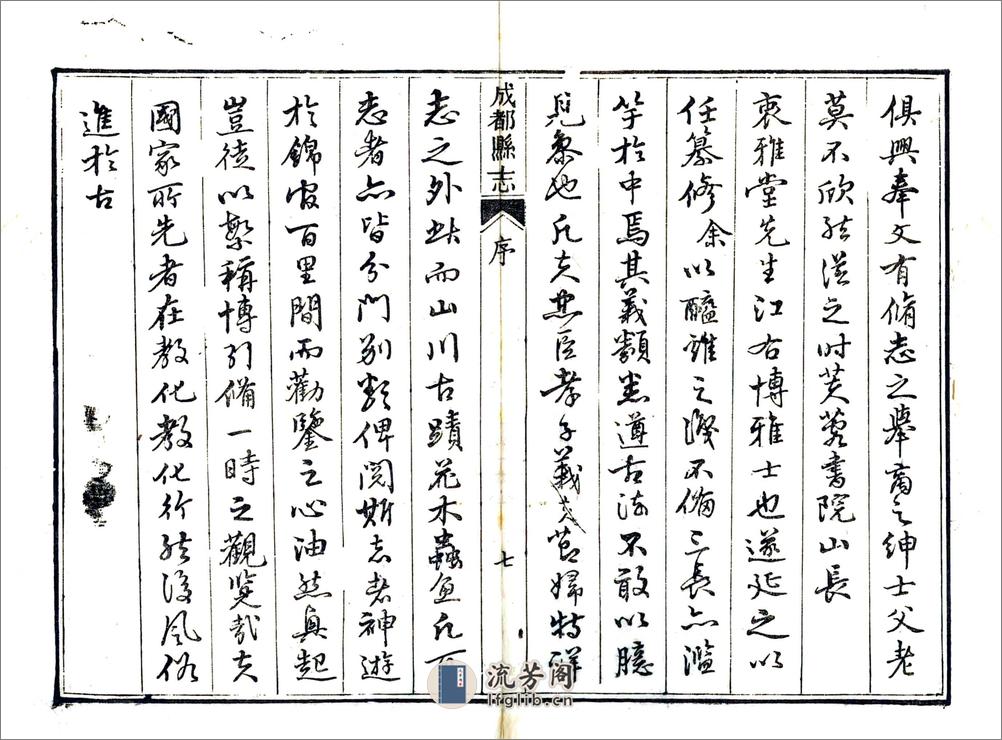 俱興奉文有脩志之舉商之紳士父老
莫不欣然從之時芙蓉書院山長
衷雅堂先生江右博雅士也遂延之以
任纂修余以醯雞之淺不備三長亦濫
竽於中焉其義類悉遵古法不敢以臆
見參也凡夫忠臣孝子義夫節婦特詳
成都縣志
序
七
志之外然而山川古蹟花木蟲魚凡可
志者亦皆分門別類俾閱斯志者神遊
於錦官百里間而勸鑒之心油然興起
豈徒以繁稱博引備一時之觀覽哉夫
國家所先者在教化教化行然後風俗
進於古
流芳閣
lfglib.cn